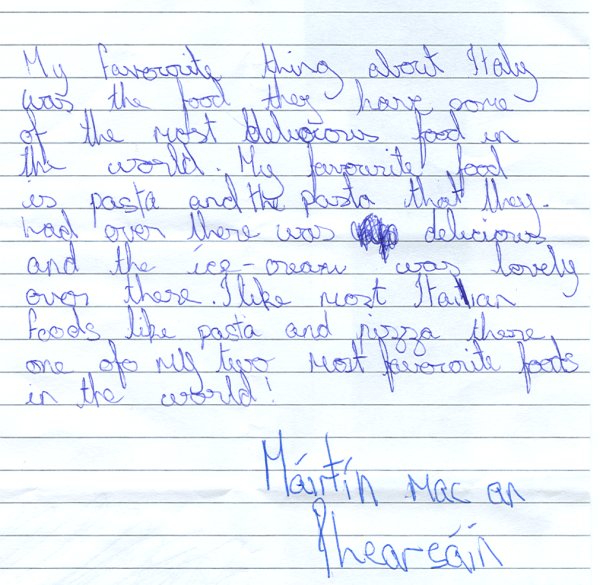 My favourite thing about Italy
was the food they have some
of the most delicious food in
the world. My favourite food
is pasta and the pasta that they
had over there was delicious
and the ice-cream was lovely
over there. I like most Italian
foods like pasta and pizza there
one ofo my two most favourite foods
in the world!
Máirtín Mac an
Phearsáin